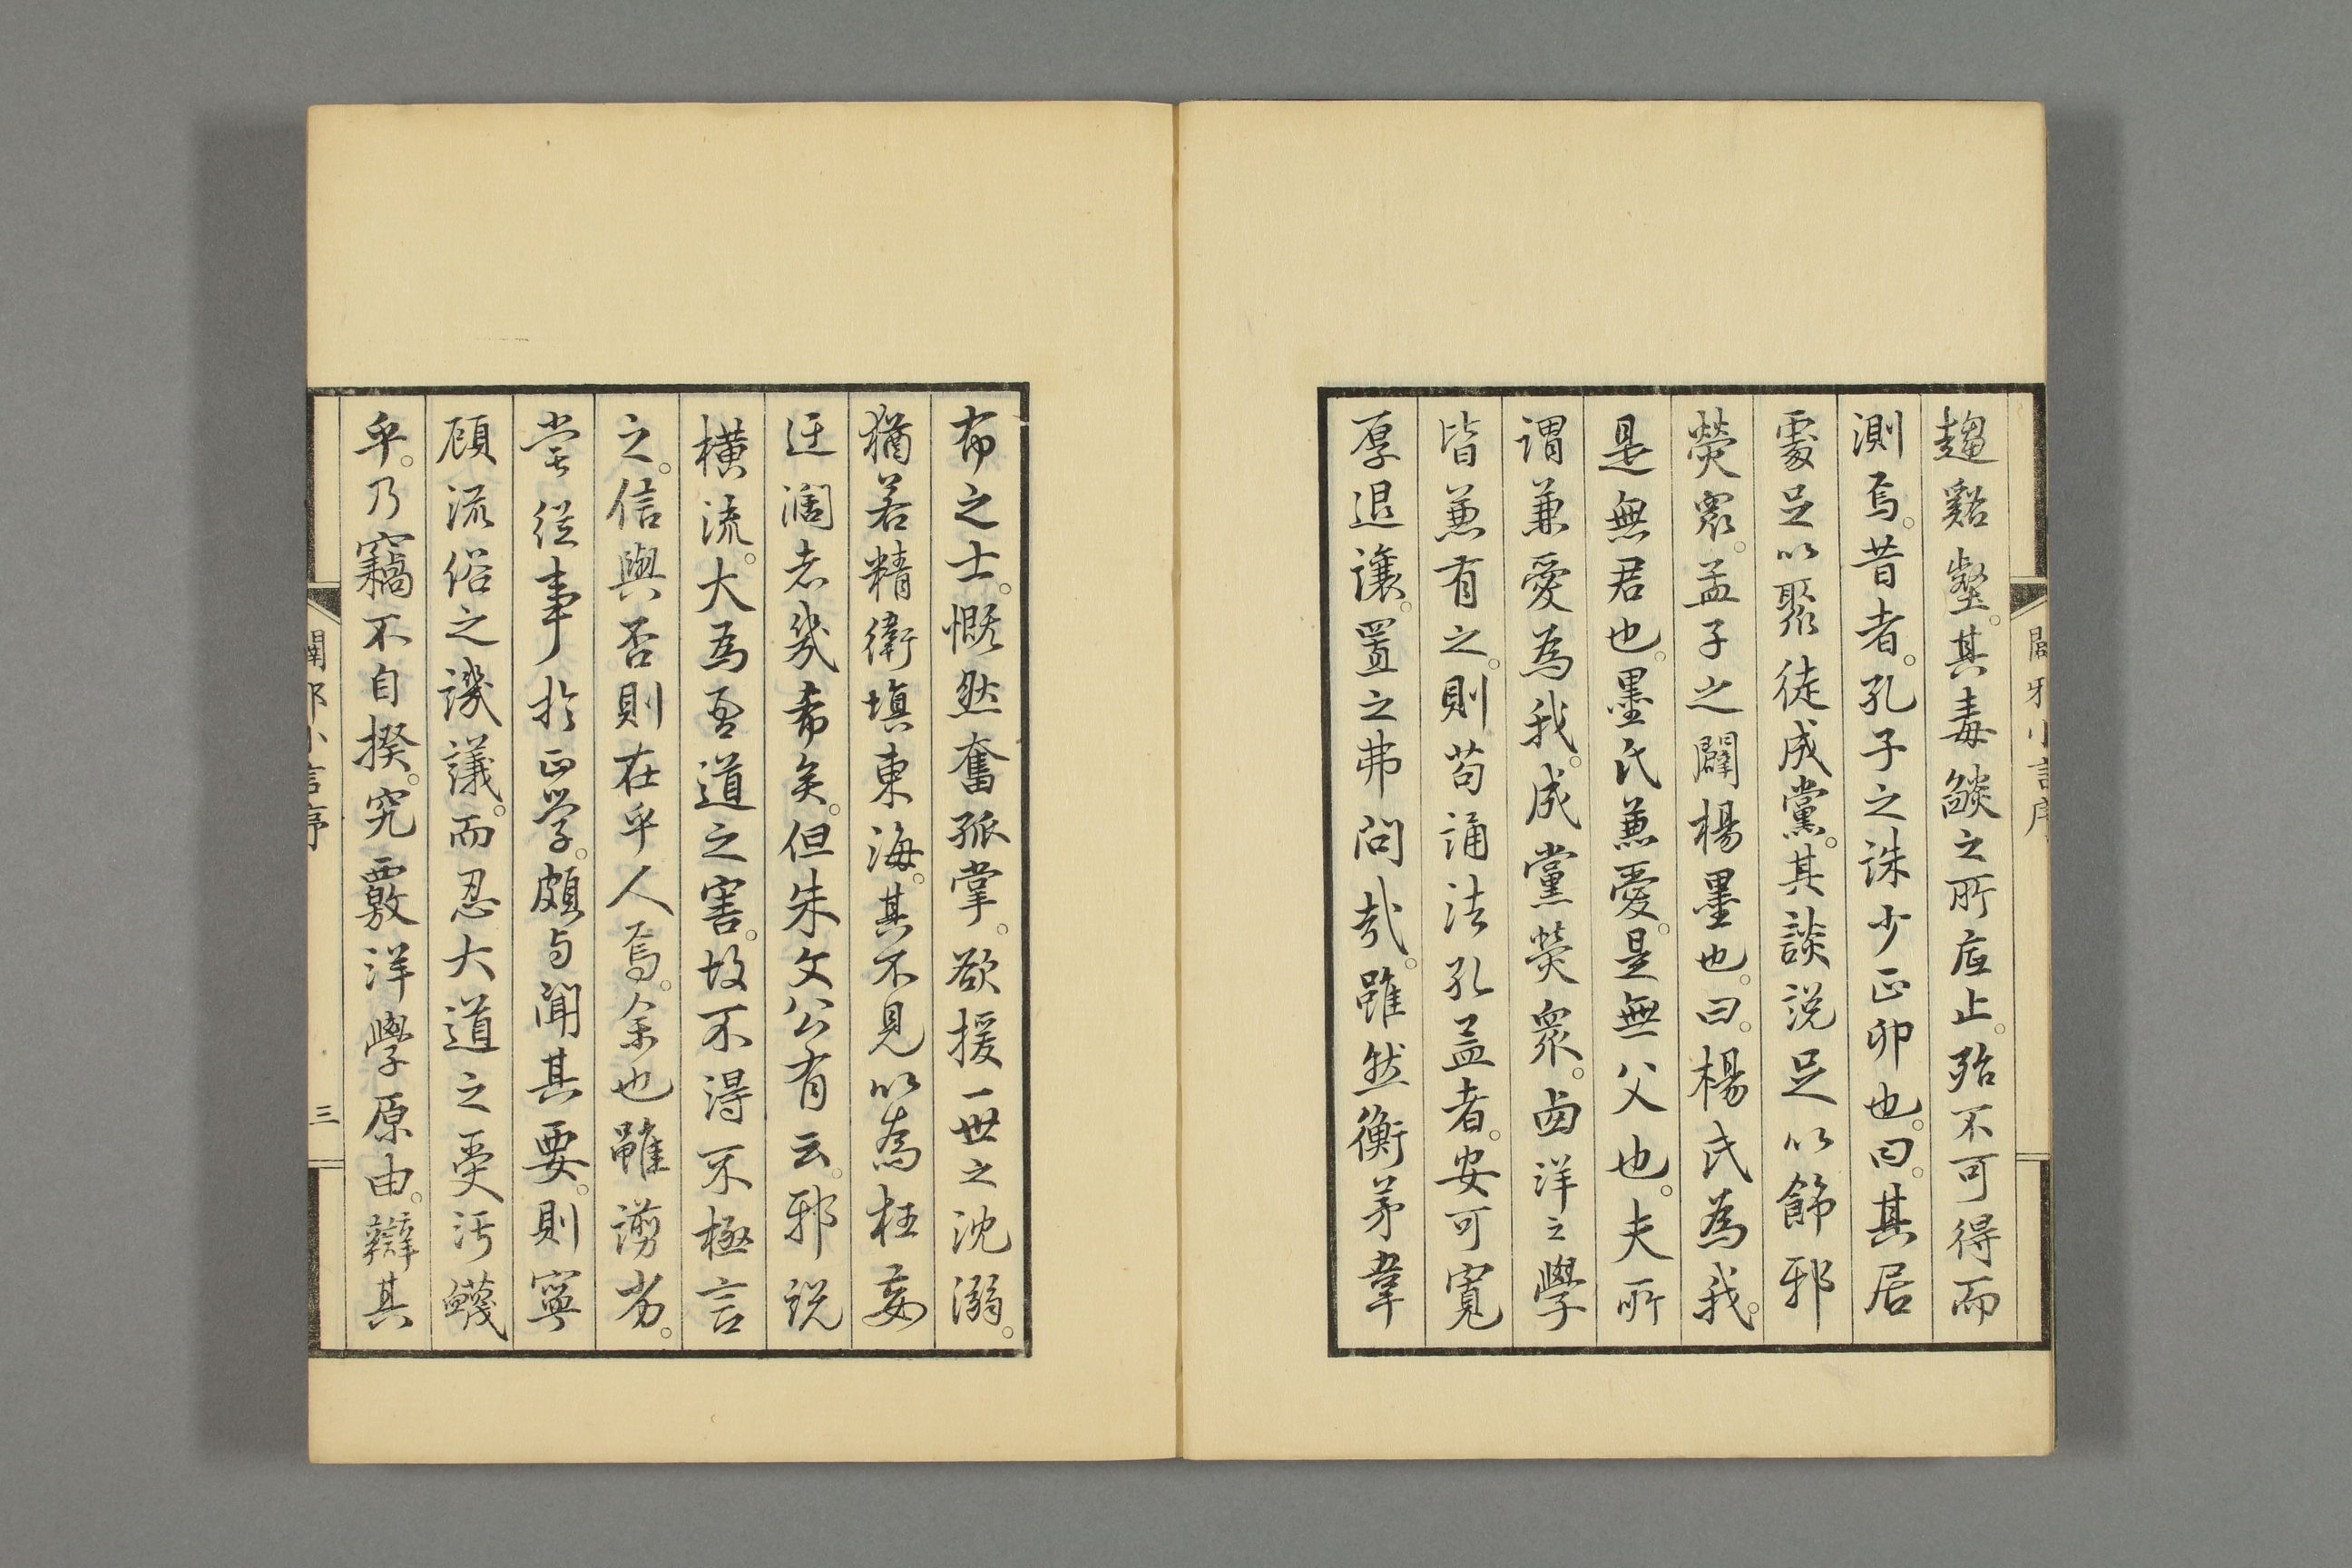 闢邪小言序
趨谿壑。其毒燄之所底止。殆不可得而
測焉。昔者。孔子之誅少正卯也。曰。其居
處足以聚徒成黨。其談說足以飾邪
熒衆。孟子之闢楊墨也。曰。楊氏為我。
是無君也。墨氏兼愛。是無父也。夫所
謂兼愛為我。成黨熒衆。西洋之學
皆兼有之。則苟誦法孔孟者。安可寬
厚退讓。置之弗問哉。雖然衡茅韋
布之士。慨然奮孤掌。欲援一世之沈溺。
猶若精衛塡東海。其不見以為狂妄
迂濶者幾希矣。但朱文公有云。邪説
橫流。大為吾道之害。故不得不極言
之。信與否則在乎人焉。余也雖謭劣。
嘗從事於正學。頗与聞其要。則寧
顧流俗之譏議。而忍大道之受汚衊
乎。乃竊不自揆。究覈洋學原由。辯其
闢邪小言序
三